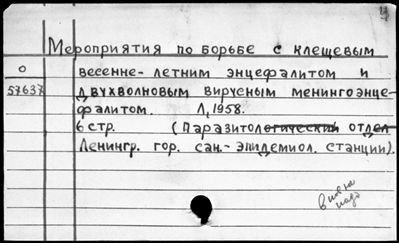 Мероприятия по борьбе с клещевым
о
весенне-летним энцефалитом и
57637
двухволновым вирусным менингоэнце-
фалитом. Л, 1958.
6 стр. (Паразитологический отдел
Ленингр. гор. сан.- эпидемиол. станции).